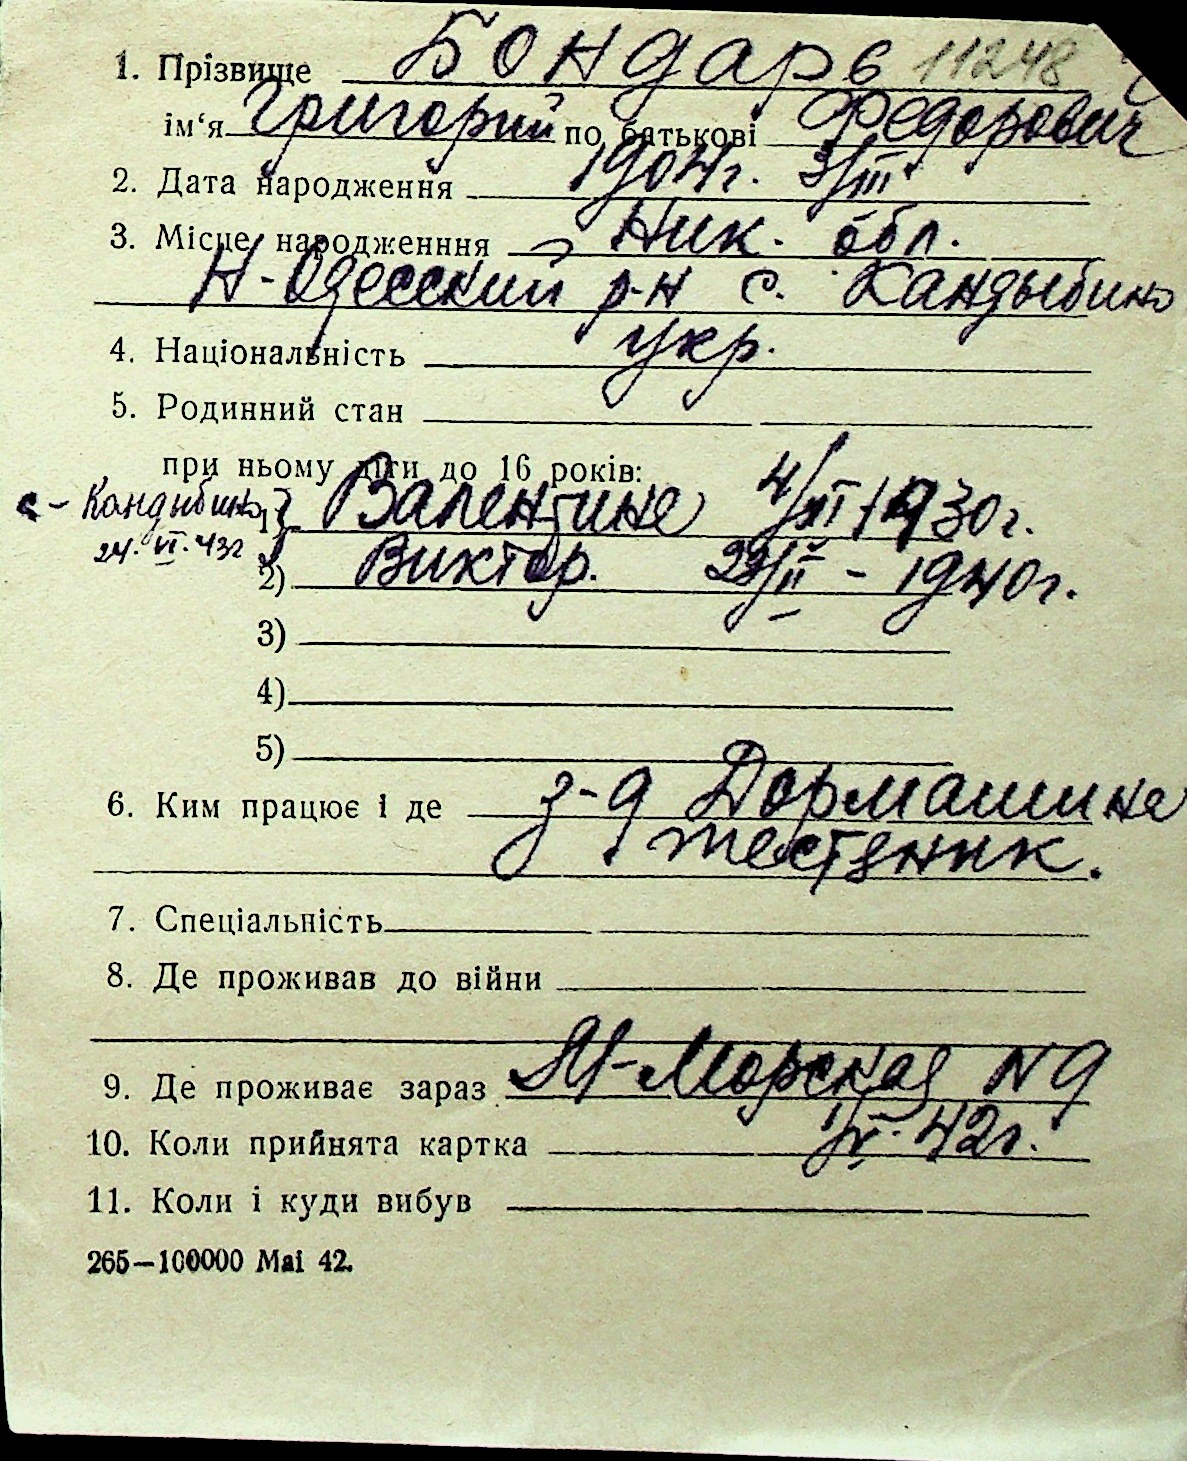 1. Прізвище Бондарь 11248
ім‘я Григорий по батькові Федорович
2. Дата народження 1904г. 3/III
3. Місце народженння Ник. обл.
Н-Одесский р-н с. Кандыбино
4. Національність укр.
5. Родинний стан
при ньому діти до 16 років:
с-Кандыбино 1) Валентине 4/XI 1930г.
24.VI.43г 2) Виктор. 22/II - 1940г.
3)
4)
5)
6. Ким працює і де з-д Дормашине
жестяник.
7. Спеціальність
8. Де проживав до війни
9. Де проживає зараз Морская N 9
10. Коли прийнята картка 42г.
11. Коли і куди вибув
265—100000 Mai 42.